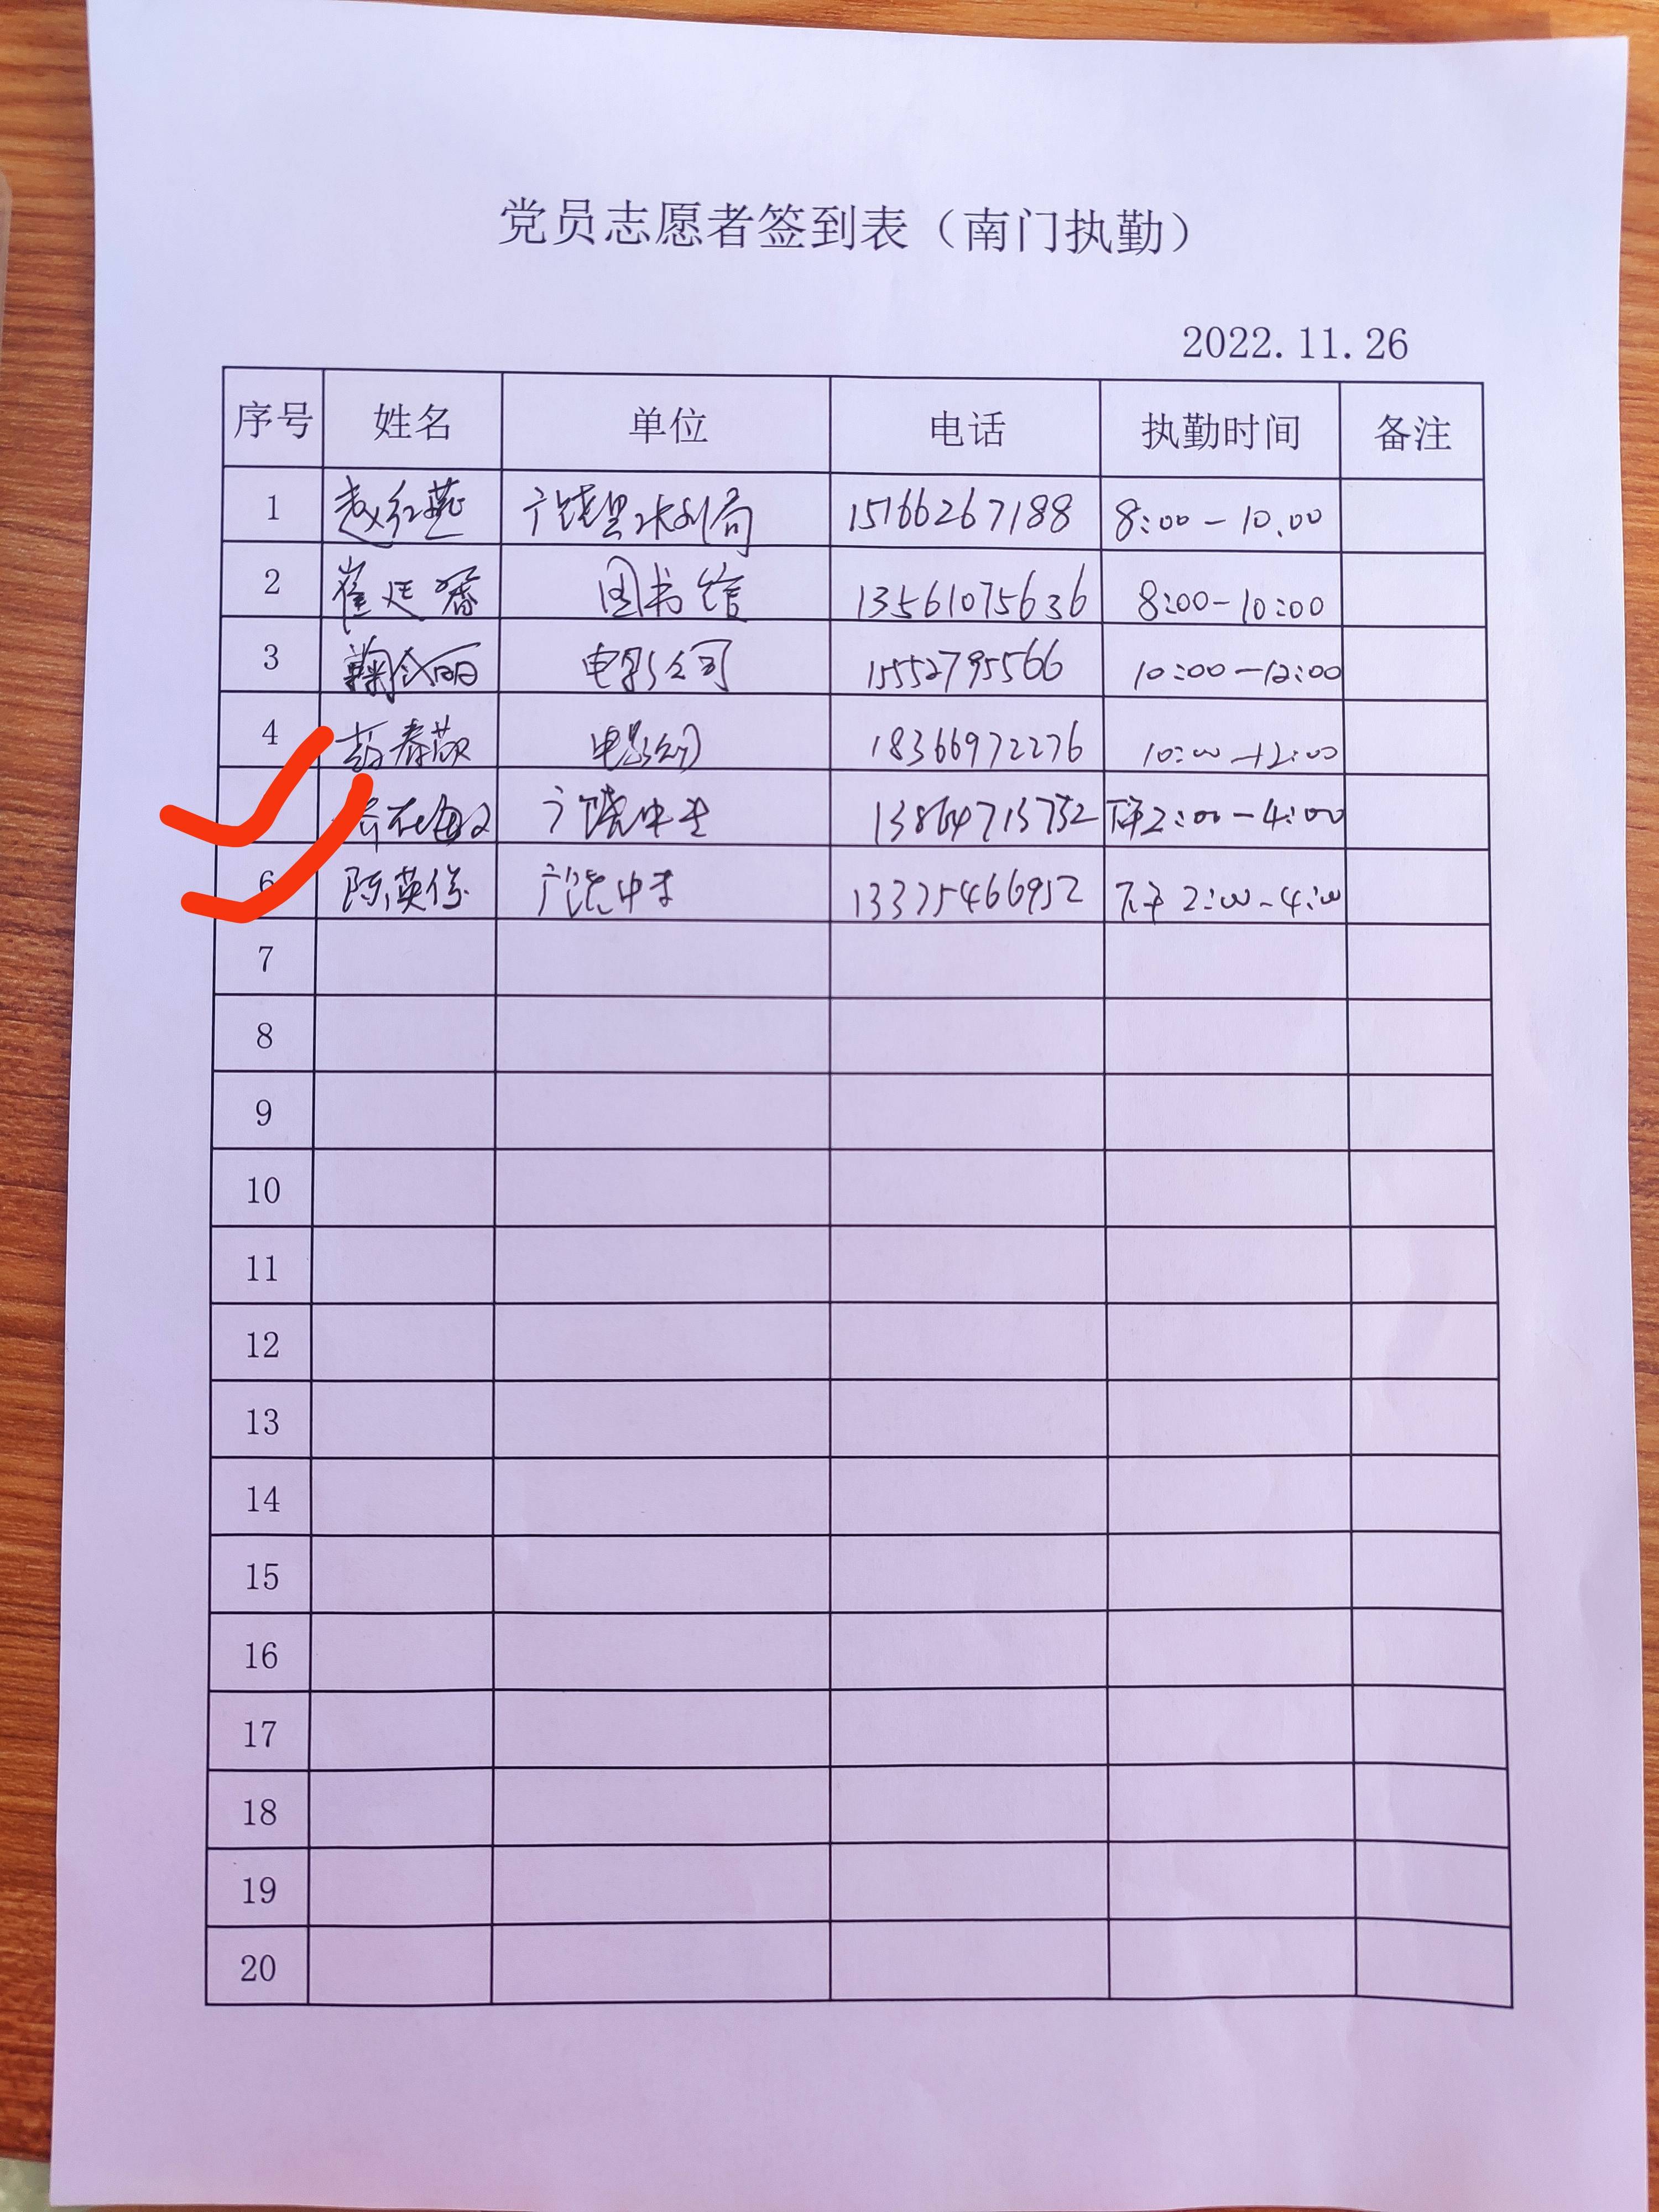 党员志愿者签到表（南门执勤）
2022.11.26
序号 姓名 单位 电话 执勤时间 备注
1 赵红燕 广饶县水利局 15166267188 8:00-10.00
2 崔廷香 图书馆 13561075636 8:00-10:00
3 鞠金丽 电影公司 15552795566 10:00-12:00
4 春 电影公司 18366972276 10:00-12:00
广饶中专 13864713752 下午2:00-4:00
6 陈英俊 广饶中专 13375466952 下午2:00-4:00
7
8
9
10
11
12
13
14
15
16
17
18
19
20